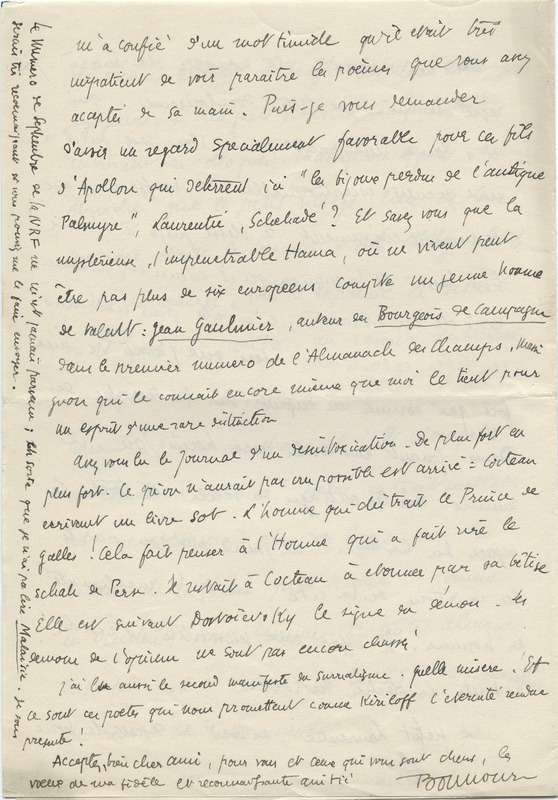 m'a confié d'un mot timide qu'il était très
impatient de voir paraître les poèmes que vous avez
acceptés de sa main. Puis-je vous demander
d'avoir un regard spécialement favorable pour ces fils
d'Apollon qui déterrent ici "les bijoux perdus de l'antique
Palmyre", Laurentié, Schehadé ? Et savez vous que la
mystérieuse, l'impénétrable Hama, où ne vivent peut
être pas plus de six européens compte un jeune homme
de talent : Jean Gaulmier, auteur des Bourgeois de Campagne
dans le premier numero de l'Almanach des Champs,
qui le connait encore mieux que moi le tient pour
un esprit d'une rare distinction
Avez vous lu le Journal d'un desintoxication. De plus fort en
plus fort. Ce qu'on n'aurait pas cru possible est arrivé : Cocteau
ecrivant un livre sot. L'homme qui distrait le Prince de
Galles ! Cela fait penser à l'Homme qui a fait rire le
Schah de Perse. Il restait à Cocteau à etonner par sa bêtise
Elle est suivant Dostoievsky le signe du démon. Les
demons de l'opium ne sont pas encore chassés
J'ai lu aussi le second manifeste du surrealisme. Quelle misère ! Et
ce sont ces poetes qui nous promettent comme Kiriloff l'eternité rendue
presente !
Acceptez, bien cher ami, pour vous et ceux qui vous sont chers, les
voeux de ma fidèle et reconnaissante amitié
Bounoure
Le Numero de Septembre de la NRF ne m'est jamais parvenu ; en sorte que je n'ai pas lu Malaisie. Je vous
serais très reconnaissant si vous pouviez me le faire envoyer.